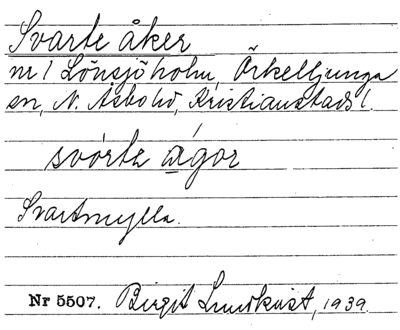 Svarte åker
nr 1 Lönsjöholm, Örkelljunga
sn, N. Åsbohd, Kristianstads l.
svó́rte ǻgor
Svartmylla.
Nr 5507. Birgit Lundkvist, 1939.